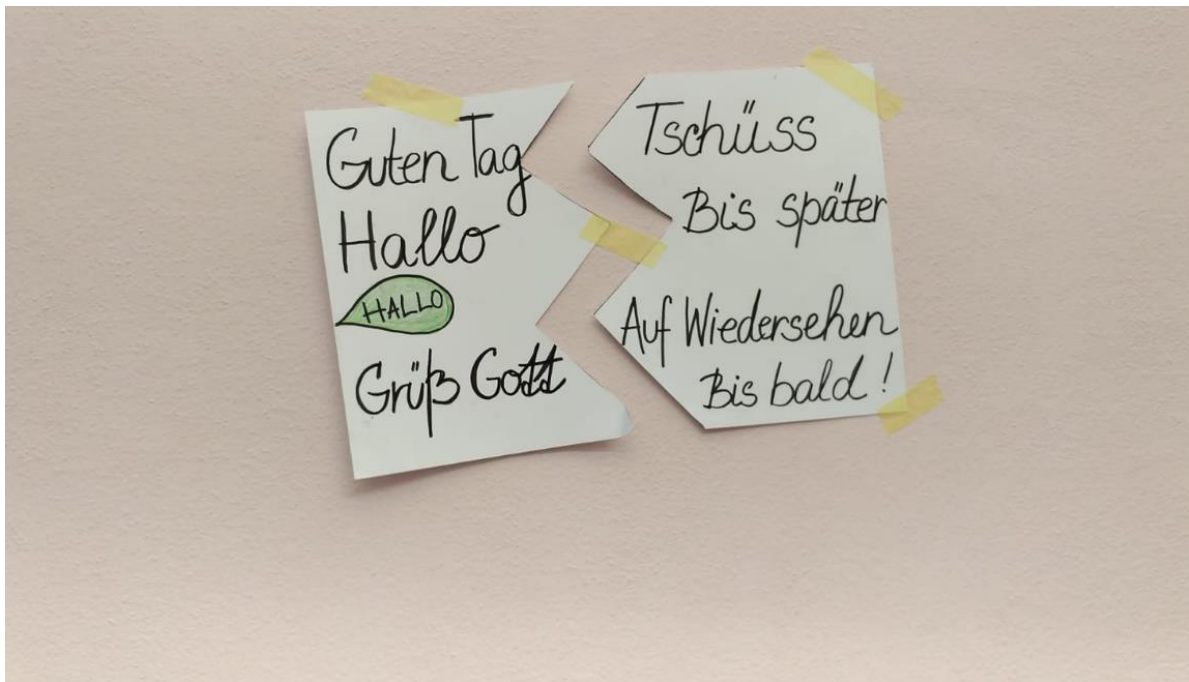 Guten Tag
Hallo
HALLO
Grüß Gott
Tschüss
Bis später
Auf Wiedersehen
Bis bald!